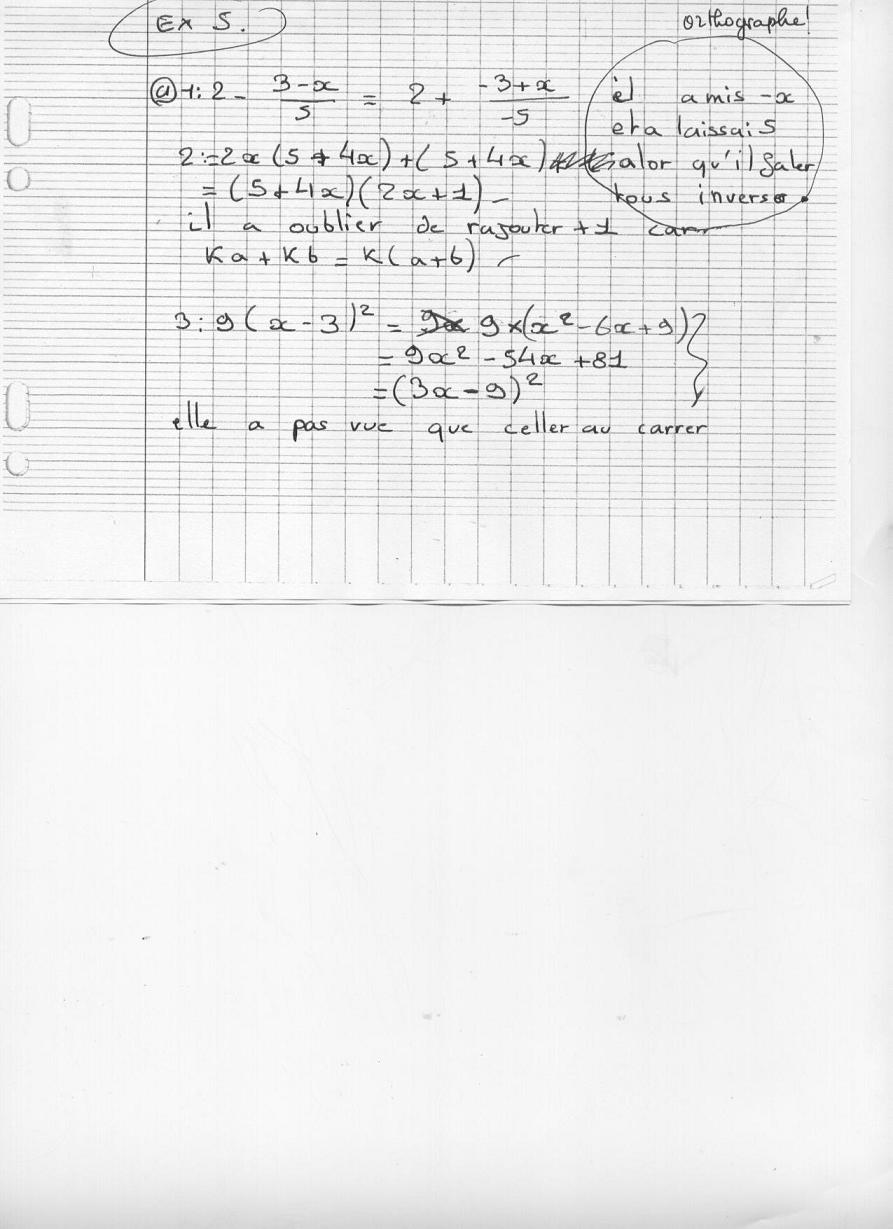 Ex 5.
Orthographe!
ⓐ 1: 2 - (3-x)/5 = 2 + (-3+x)/-5
il a mis -x
et a laissai 5
alor qu'il faler
tous inverser.
2:=2x(5+4x)+(5+4x)
=(5+4x)(2x+1)-
il a oublier de rajouter +1 car
Ka+Kb=K(a+b)
3: 9(x-3)² = 9×(x²-6x+9)
=9x²-54x+81
=(3x-9)²
elle a pas vue que celler au carrer